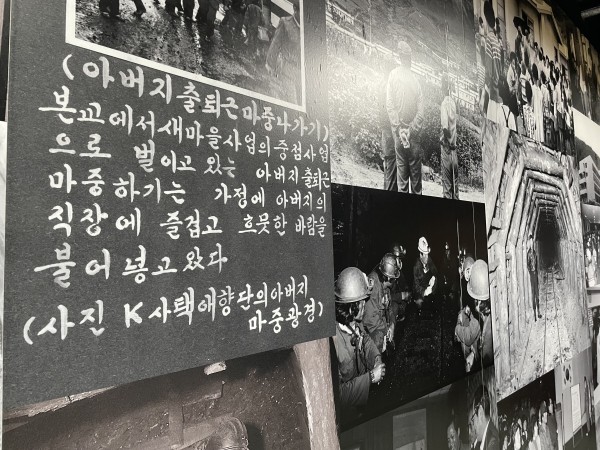 (아버지출퇴근마중나가기)
본교에서새마을사업의중점사업
으로 벌이고 있는 아버지출퇴근
마중하기는 가정에 아버지의
직장에 즐겁고 흐뭇한 바람을
불어 넣고 왔다
(사진 K사택애향단의아버지
마중광경)